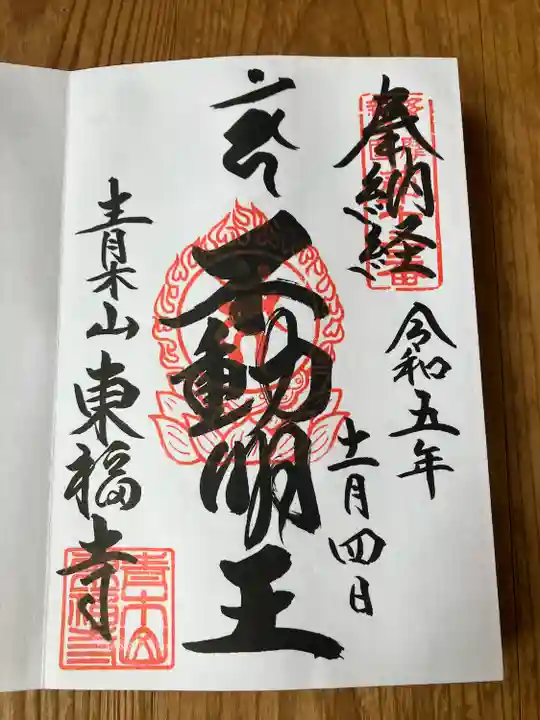 奉納経
令和五年
十一月四日
不動明王
青木山東福寺